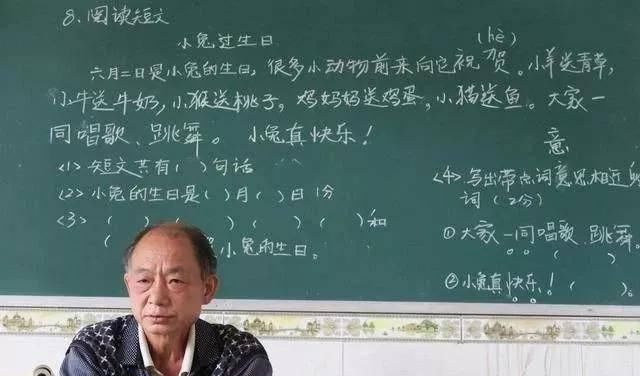 8、阅读短文
小兔过生日
(hè)
六月二日是小兔的生日，很多小动物前来向它祝贺。小羊送青草，
小牛送牛奶，小猴送桃子，鸡妈妈送鸡蛋，小猫送鱼。大家一
同唱歌、跳舞。小兔真快乐！
<1> 短文共有( )句话
<2> 小兔的生日是( )月( )日 1分
<3> ( ) ( ) ( ) ( ) ( )和
( 小兔的生日。
意
<4> 写出带点词意思相近的
词 (2分)
①大家一同唱歌、跳舞。
( )
②小兔真快乐！( )。